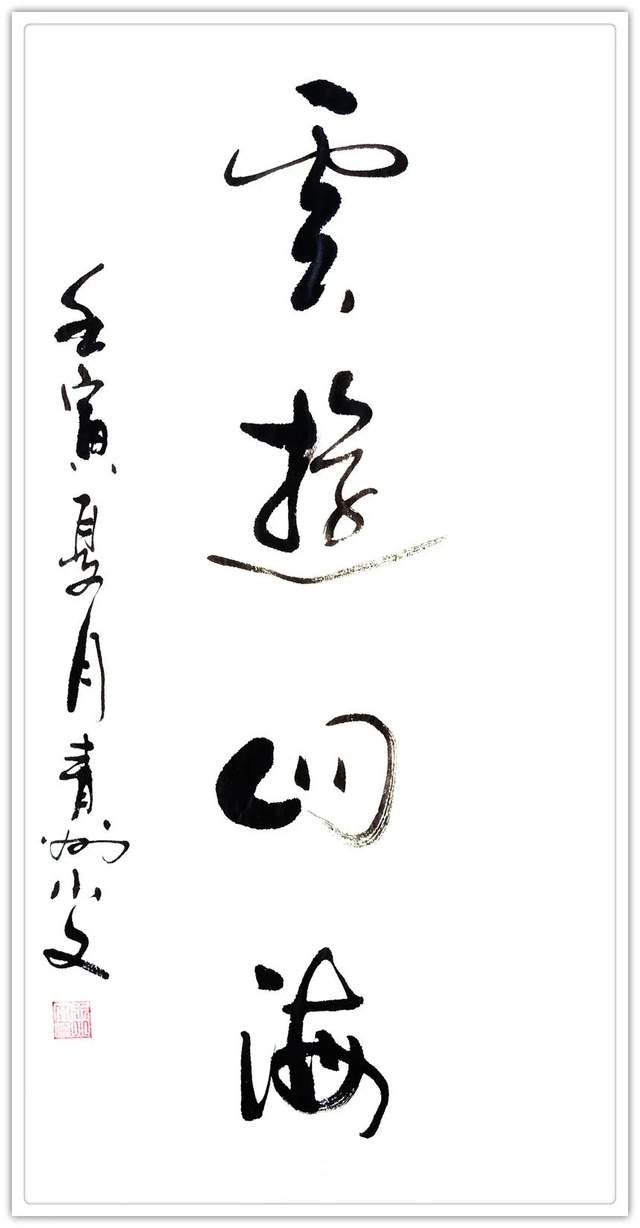 雲遊四海
壬寅夏月青州小文